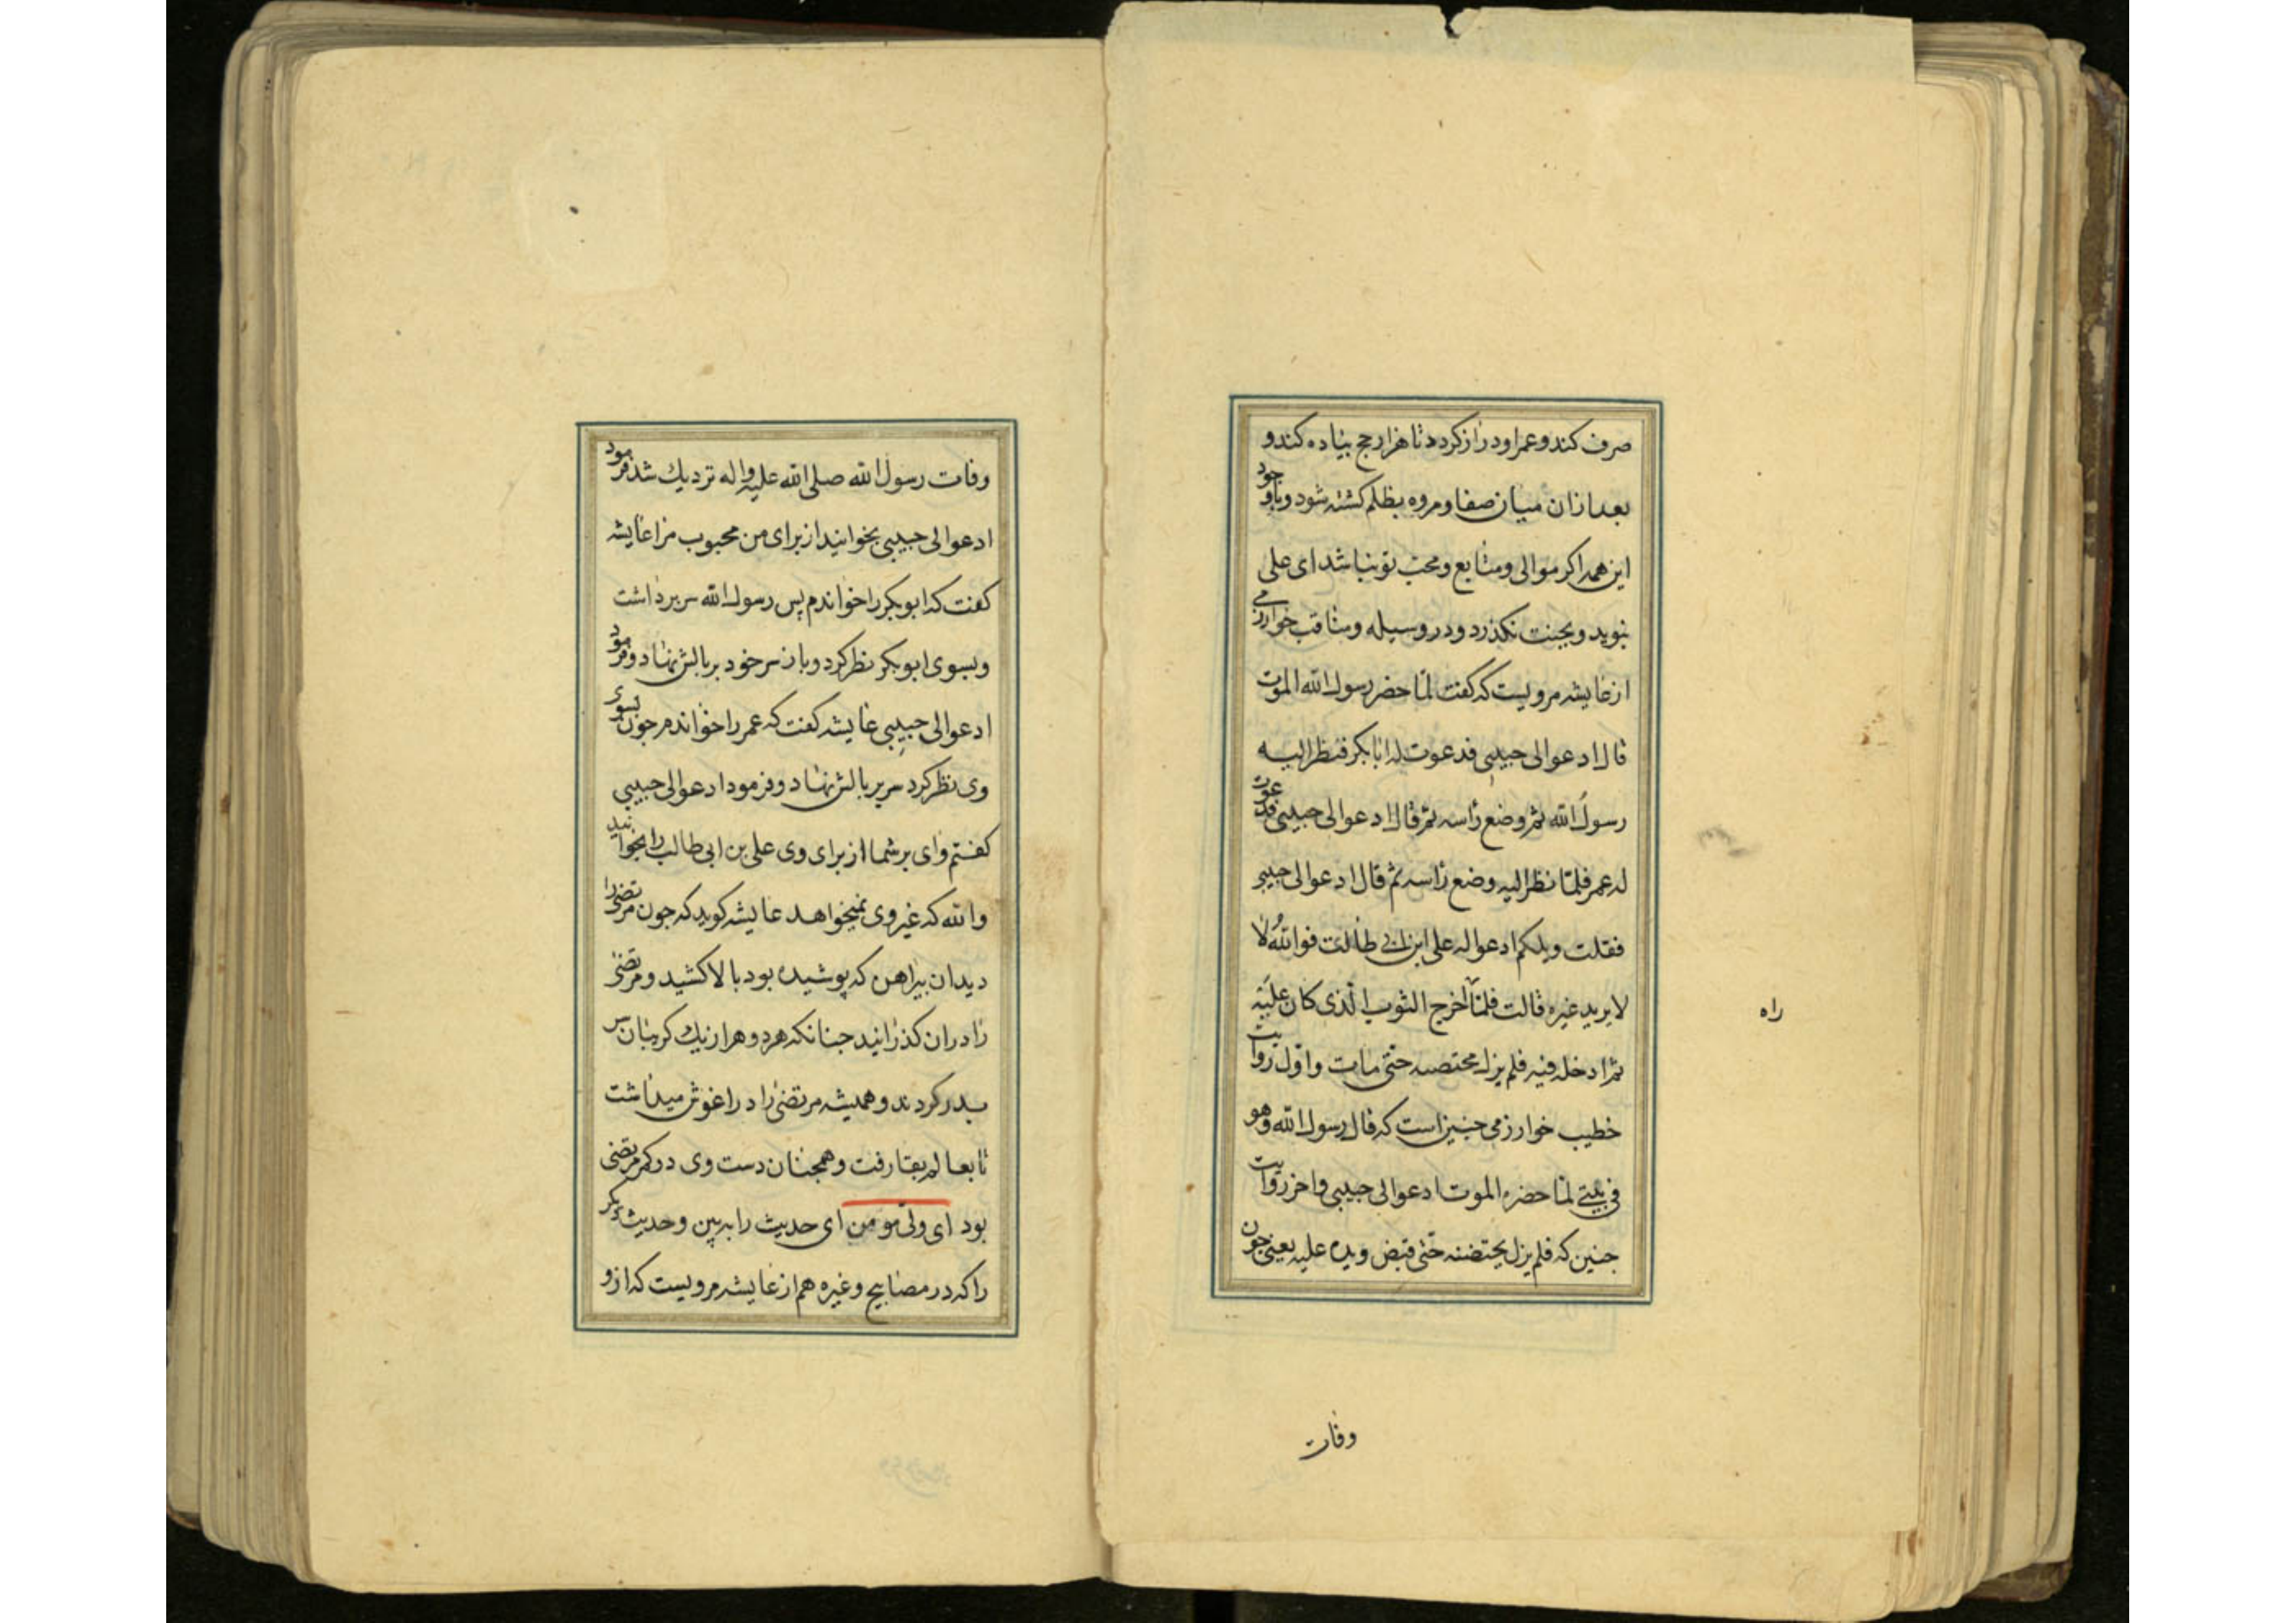 صرف کند و عمر او دراز کردد تا هزار حج بیاده کند و
بعد ازان میان صفا و مروه بظلم کشته شود و باوجود
این همه اکر موالی و متابع و محب تو نباشد ای علی
نبوید و بجنت نکذرد و در وسیله و مناقب خوارزمی
از عایشه مرویست که کفت لما حضر رسول الله الموت
قال ادعوا لی حبیبی فدعوت له ابا بکر فنظر الیه
رسول الله ثم وضع راسه ثم قال ادعوا لی حبیبی فدعوت
له عمر فلما نظر الیه وضع راسه ثم قال ادعوا لی حبیبی
فقلت ویلکم ادعوا له علی ابن ابی طالب فوالله لا
لا یرید غیره قالت فلما اخرج الثوب الذی کان علیه
ثم ادخله فیه فلم یزل محتضنه حتی مات و اول روایت
خطیب خوارزمی جنین است که قال رسول الله وهو
فی بیتی لما حضره الموت ادعوا لی حبیبی و اخر روایت
جنین که فلم یزل یحتضنه حتی قبض ویده علیه یعنی جون
راه
وفات
وفات رسول الله صلی الله علیه واله نزدیك شد فرمود
ادعوا لی حبیبی بخوانید از برای من محبوب مرا عایشه
کفت که ابو بکر را خواندم پس رسول الله سر برداشت
و بسوی ابو بکر نظر کرد و باز سر خود بر بالش نهاد و فرمود
ادعوا لی حبیبی عایشه کفت که عمر را خواندم جون بسوی
وی نظر کرد سر بر بالش نهاد و فرمود ادعوا لی حبیبی
کفتم وای بر شما از برای وی علی بن ابی طالب را بخوانید
والله که غیر وی نمیخواهد عایشه کوید که جون مرتضی را
دید ان بیراهن که پوشیده بود بالا کشید و مرتضی
را دران کذرانید جنانکه هر دو هر از یك کریبان سر
بدر کردند و همیشه مرتضی را در اغوش میداشت
تا بعالم بقا رفت و همجنان دست وی در کمر مرتضی
بود ای ولی مومن ای حدیث را ببین و حدیث دیکر
را که در مصابیح و غیره هم از عایشه مرویست که ازو